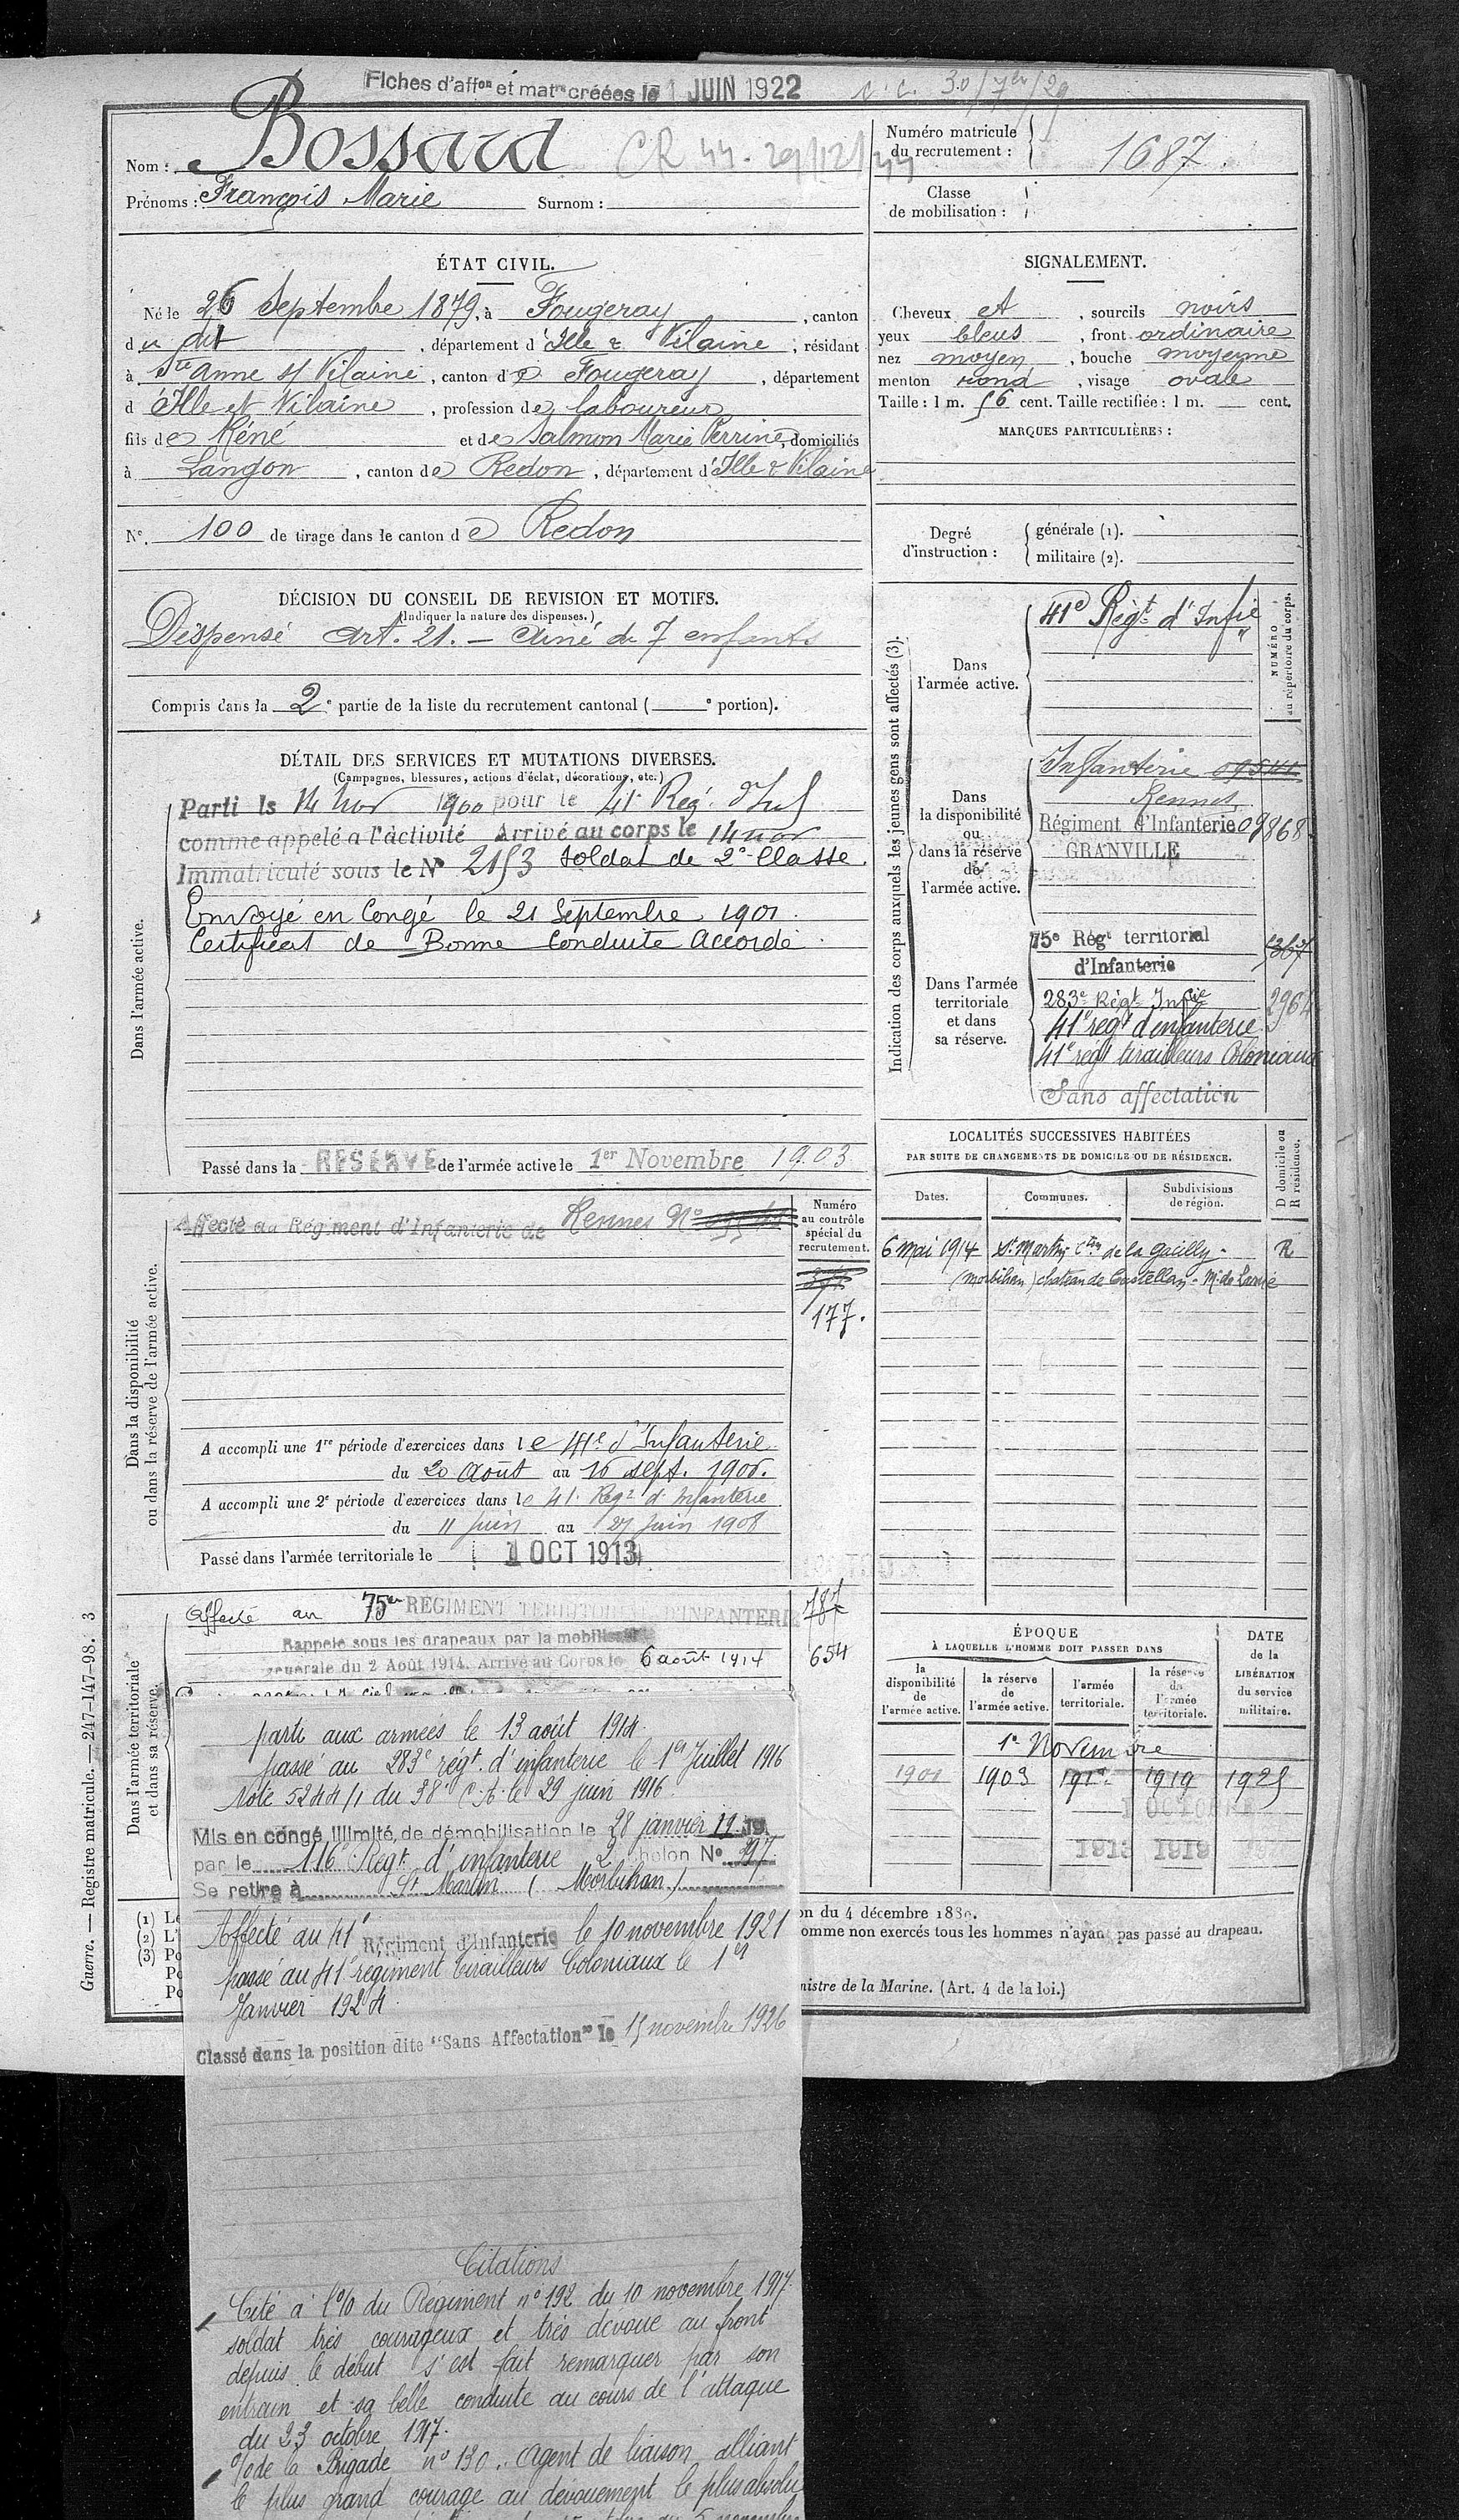 Fiches d'affon et matrs créées le 1 JUIN 1922
C.C. 30/7br/29
Nom : Bossard
CR 44. 29/12/44
Prénoms : François Marie Surnom :
Numéro matricule du recrutement : 1687.
Classe de mobilisation :
ÉTAT CIVIL.
Né le 26 Septembre 1879, à Fougeray, canton
du dit, département d'Ille & Vilaine, résidant
à Ste Anne s/ Vilaine, canton de Fougeray, département
d'Ille et Vilaine, profession de laboureur
fils de Réné et de Salmon Marie Perrine, domiciliés
à Langon, canton de Redon, département d'Ille & Vilaine
N°. 100 de tirage dans le canton de Redon
SIGNALEMENT.
Cheveux et, sourcils noirs
yeux bleus, front ordinaire
nez moyen, bouche moyenne
menton rond, visage ovale
Taille : 1 m. 56 cent. Taille rectifiée : 1 m. cent.
MARQUES PARTICULIÈRES :
Degré d'instruction :
générale (1).
militaire (2).
DÉCISION DU CONSEIL DE REVISION ET MOTIFS.
(Indiquer la nature des dispenses.)
Dispensé Art. 21. — Ainé de 7 enfants
Compris dans la 2e partie de la liste du recrutement cantonal ( e portion).
DÉTAIL DES SERVICES ET MUTATIONS DIVERSES.
(Campagnes, blessures, actions d'éclat, décorations, etc.)
Dans l'armée active.
Parti le 14 nov 1900 pour le 41e Reg. d'Inf
comme appelé a l'activité Arrivé au corps le 14 nov
Immatriculé sous le N° 2153 soldat de 2e Classe.
Envoyé en Congé le 21 Septembre 1901.
Certificat de Bonne Conduite Accordé.
Passé dans la RESERVE de l'armée active le 1er Novembre 1903
Indication des corps auxquels les jeunes gens sont affectés (3).
NUMÉRO au répertoire du corps.
Dans l'armée active.
41e Régt d'Infie
Dans la disponibilité ou dans la réserve de l'armée active.
Infanterie
Rennes
Régiment d'Infanterie 09868
GRANVILLE
Dans l'armée territoriale et dans sa réserve.
75e Régt territorial
d'Infanterie
283e Régt Infie 2964
41e régt d'infanterie
41e régt tirailleurs Coloniaux
Sans affectation
Dans la disponibilité ou dans la réserve de l'armée active.
Affecté au Régiment d'Infanterie de Rennes N°
Numéro au contrôle spécial du recrutement.
177.
A accompli une 1re période d'exercices dans le 41e d'Infanterie
du 20 Août au 16 sept. 1906.
A accompli une 2e période d'exercices dans le 41e Régt d'Infanterie
du 11 juin au 27 juin 1908
Passé dans l'armée territoriale le 1 OCT 1913
LOCALITÉS SUCCESSIVES HABITÉES
PAR SUITE DE CHANGEMENTS DE DOMICILE OU DE RÉSIDENCE.
Dates. Communes. Subdivisions de région. D domicile ou R résidence.
6 mai 1914 St Martin Cton de la Gacilly - R
(Morbihan) chateau de Castellan -
Dans l'armée territoriale et dans sa réserve.
Affecté au 75e RÉGIMENT TERRITORIAL D'INFANTERIE 787
Rappelé sous les drapeaux par la mobilisation
générale du 2 Août 1914. Arrivé au Corps le 6 août 1914 654
parti aux armées le 13 août 1914.
passé au 283e régt. d'infanterie le 1er Juillet 1916
Note 5244/1 du 38e C.A. le 29 juin 1916.
Mis en congé illimité de démobilisation le 28 janvier 1919
par le 116e Régt d'infanterie 2 échelon N° 397.
Se retire à St Martin (Morbihan)
Affecté au 41e Régiment d'Infanterie le 10 novembre 1921
passé au 41e régiment tirailleurs Coloniaux le 1er
Janvier 1924.
Classé dans la position dite "Sans Affectation" le 15 novembre 1926
ÉPOQUE
À LAQUELLE L'HOMME DOIT PASSER DANS
la disponibilité de l'armée active.
la réserve de l'armée active.
l'armée territoriale.
la réserve de l'armée territoriale.
DATE de la LIBÉRATION du service militaire.
1er Novembre
1901 1903 1919 1925
1913 1919
on du 4 décembre 1889.
omme non exercés tous les hommes n'ayant pas passé au drapeau.
nistre de la Marine. (Art. 4 de la loi.)
(1) Le
(2) L'
(3) Po
Po
Po
Guerre. — Registre matricule. — 247-147-98. 3
Citations
Cité à l'o/o du Régiment n° 192 du 10 novembre 1917.
soldat très courageux et très dévoué au front
depuis le début s'est fait remarquer par son
entrain et sa belle conduite au cours de l'attaque
du 23 octobre 1917.
o/o de la Brigade n° 130. Agent de liaison alliant
le plus grand courage au dévouement le plus absolu